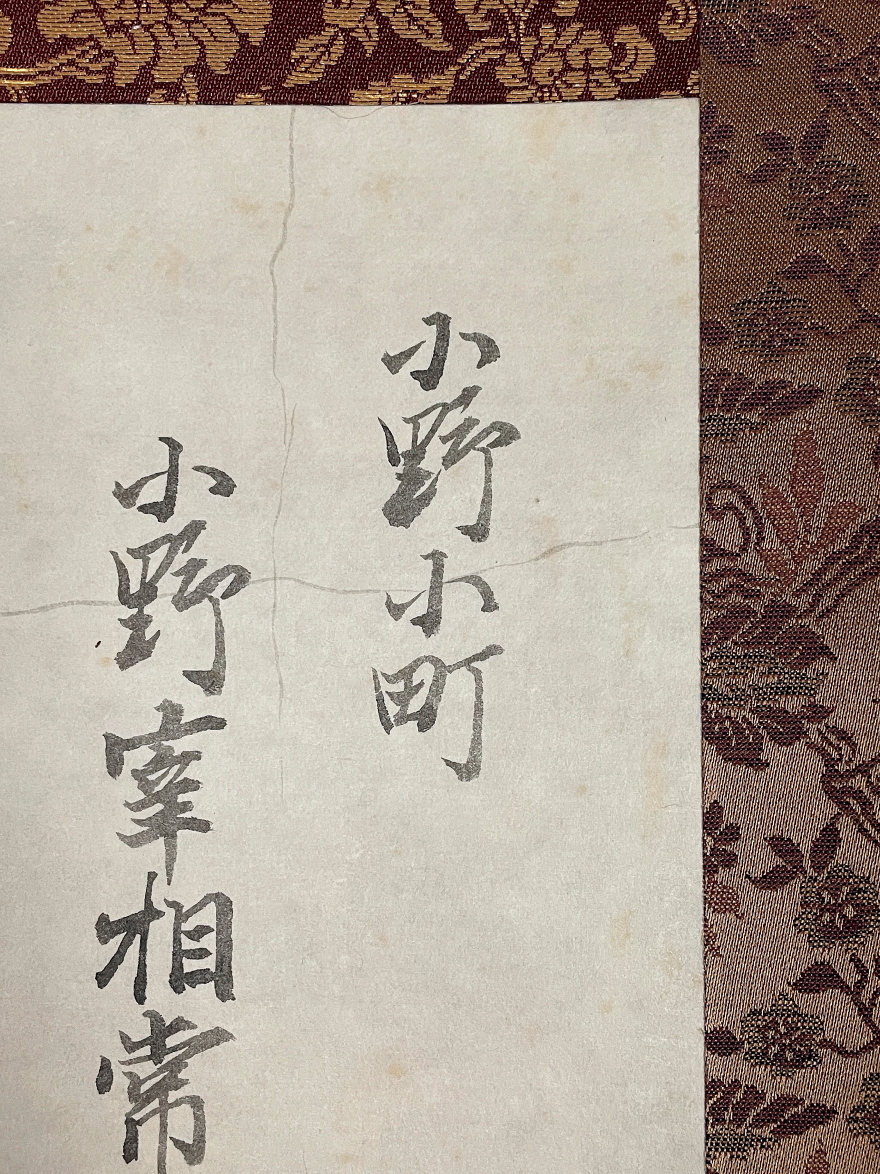 小野小町
小野宰相常